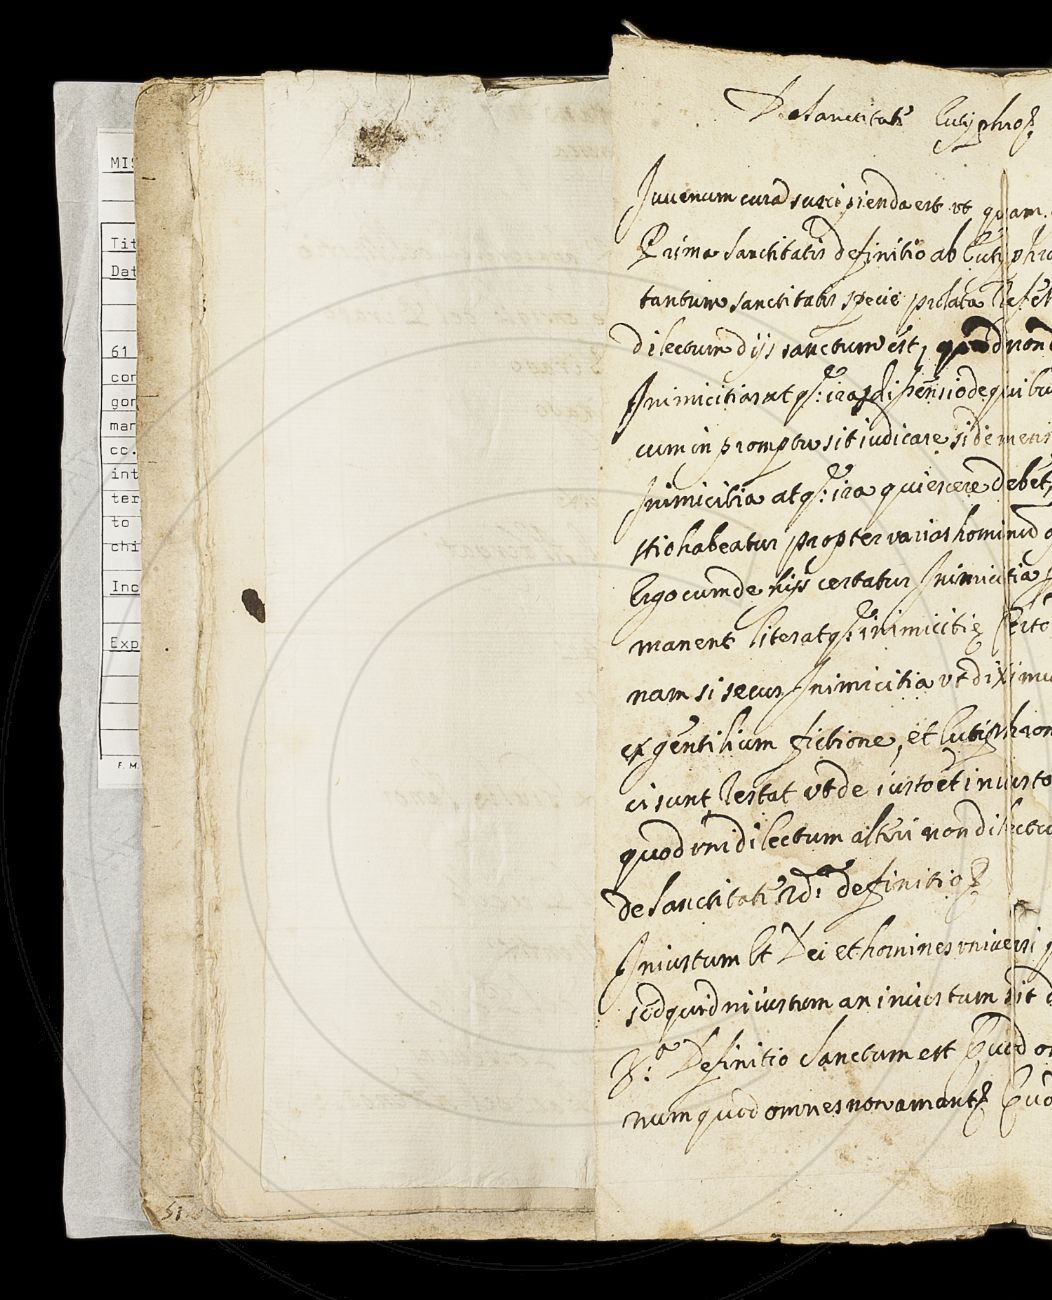 MIS
Tit
Dat
61
con
gon
mar
cc.
int
ter
to
chi
Inc
Exp
F. M.
51
De Sanctitate Eutyphro
Juvenum cura suscipienda est ut quam
Prima Sanctitatis definitio ab Eutyphro
tantum sanctitatis specie prolata
dilectum dijs sanctum est, quod non
Inimicitias atq: iras de quibu
cum in promptu sit iudicare si de
Inimicitia atq: ira quiescere debet,
stio habeatur propter varias hominu
Ergo cum de hijs certatur Inimicitia
manent atq: inimicitiȩ
nam si secus Inimicitia ut diximu
ex gentilium fictione, et Eutiphron
ci sunt Restat ut de iusto et iniusto
quod uni dilectum alteri non dilectu
de Sanctitate 2da definitio
Iniustum et Dei et homines universi
sed quid ni iustum an iniustum sit
3.a Definitio Sanctum est Quod om
num quod omnes non amant Quo